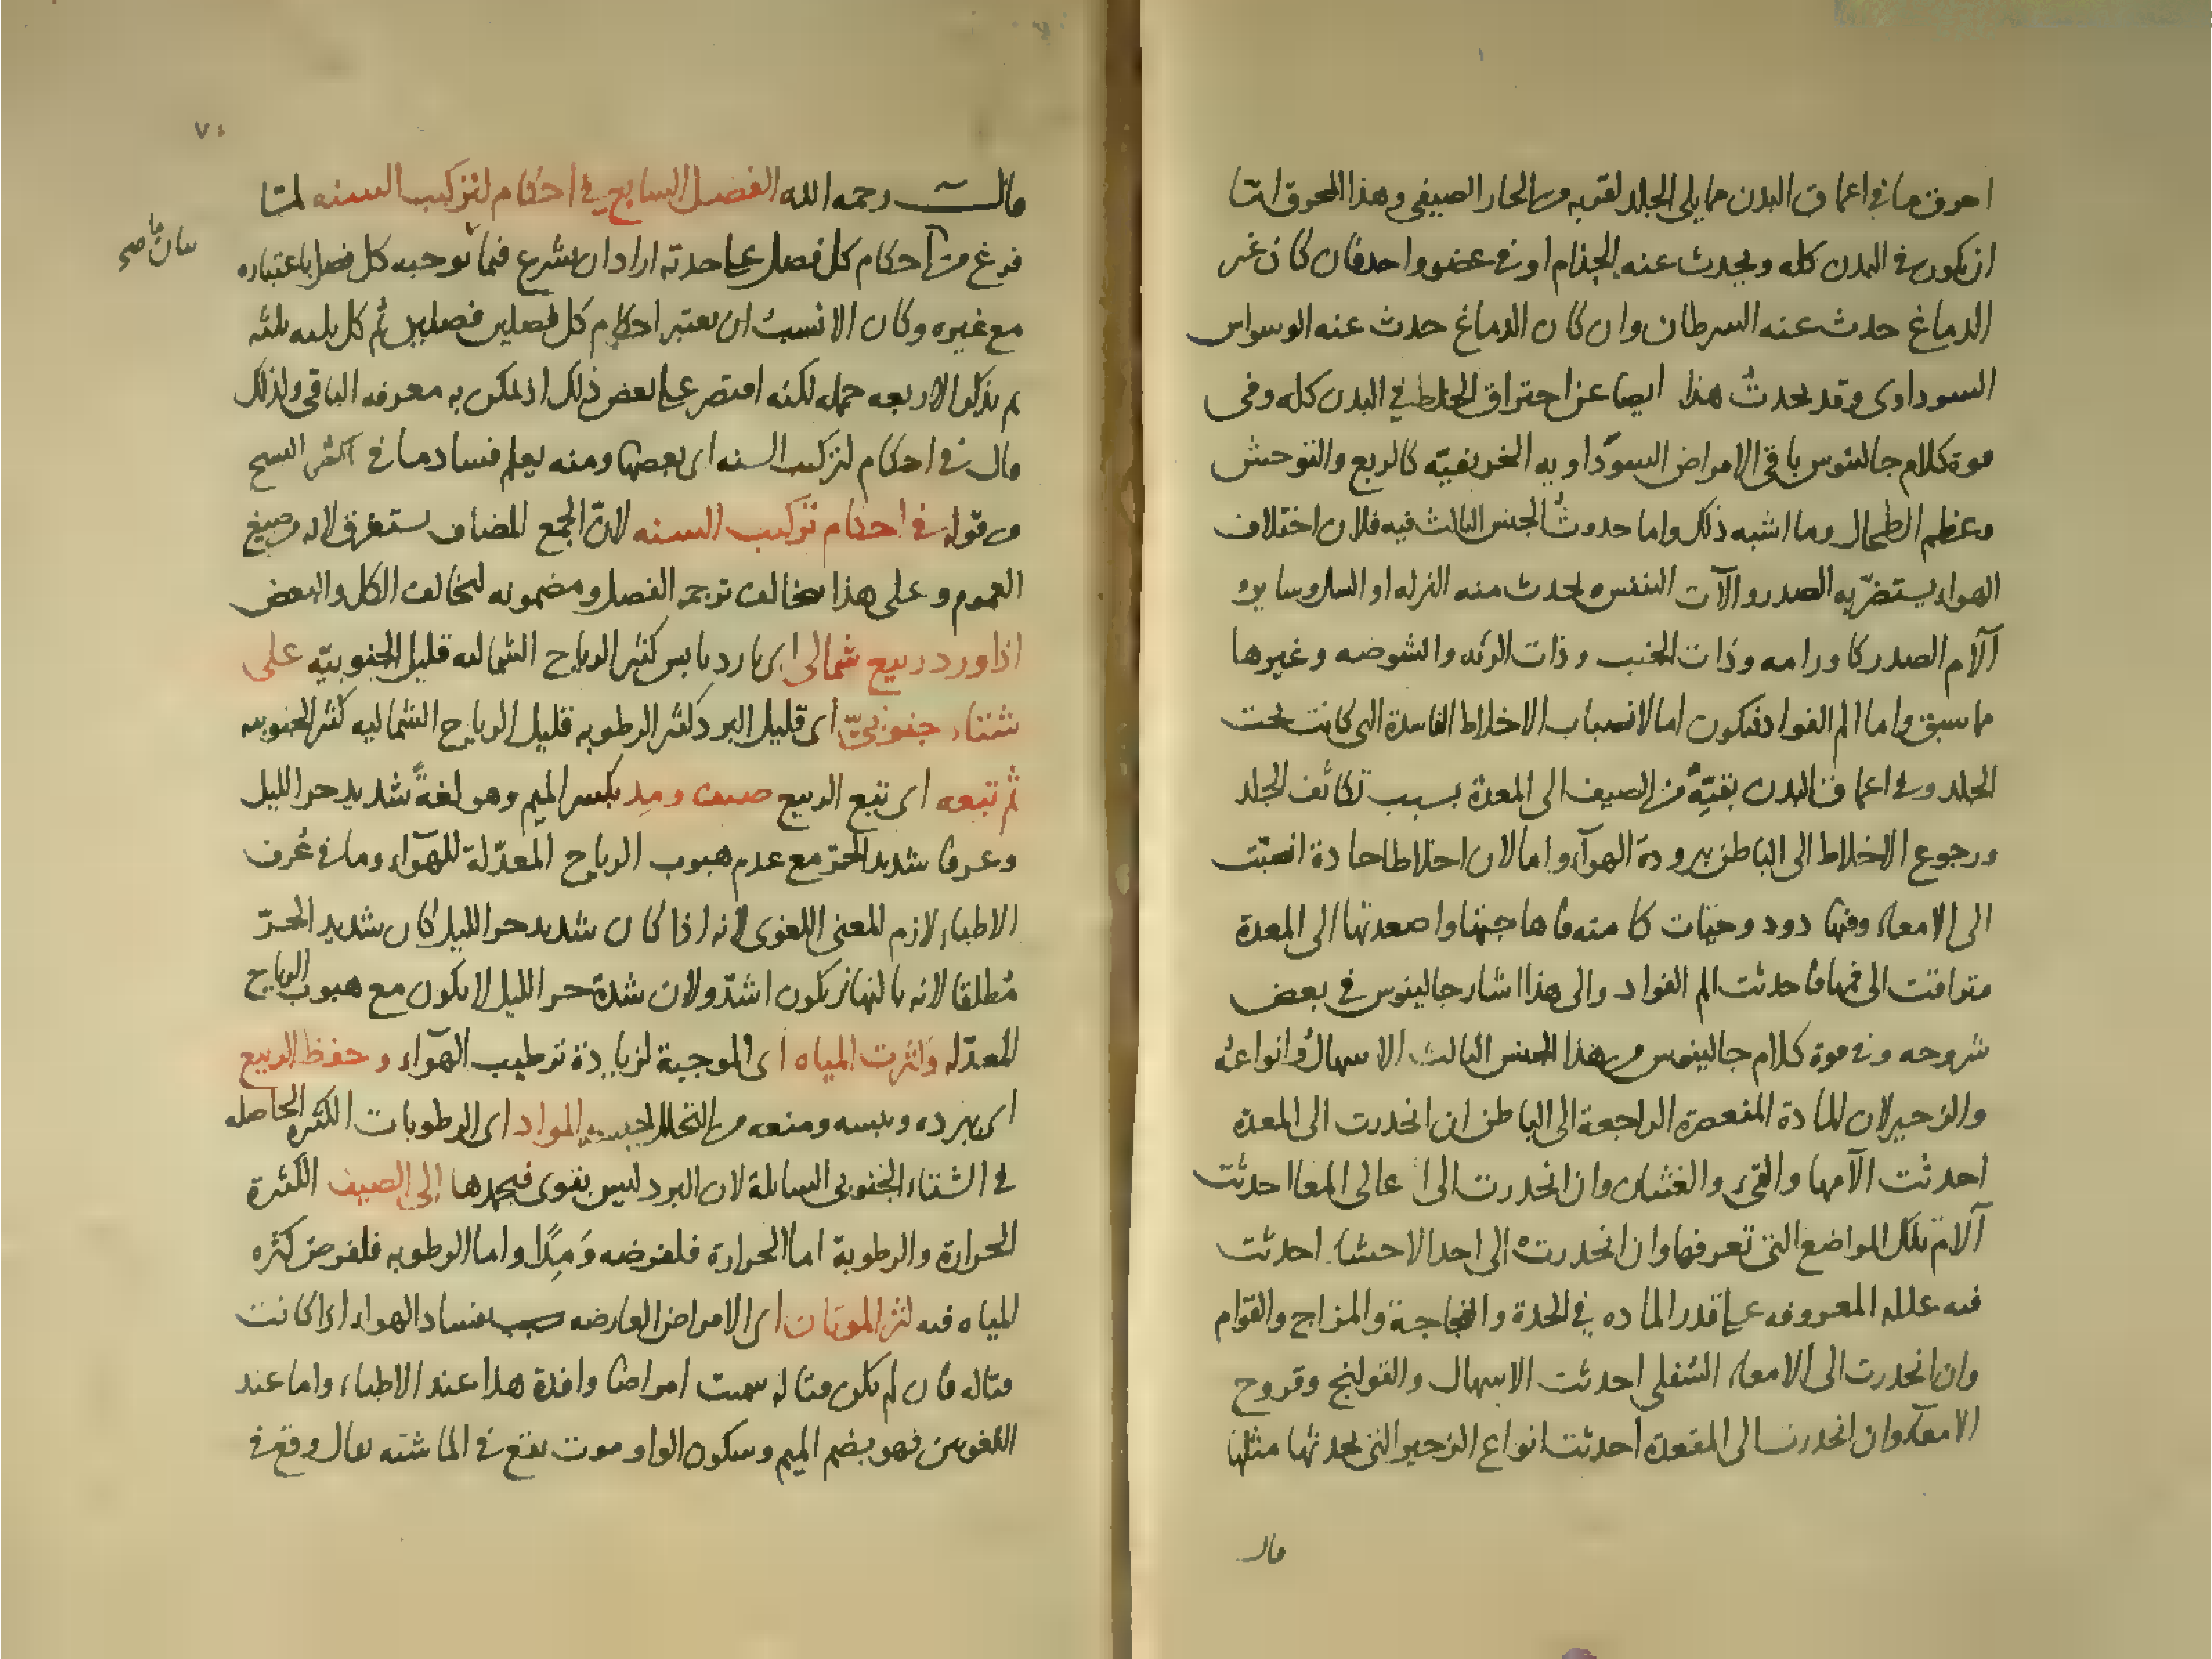 احرق ما في اعماق البدن مما يلي الجلد لقربه من الحار الصيفي وهذا المحرق اما
ان يكون في البدن كله ويحدث عنه الجذام او في عضو واحد فان كان غير
الدماغ حدث عنه السرطان وان كان الدماغ حدث عنه الوسواس
السوداوى وقد يحدث هذا ايضا عن احتراق الخلط في البدن كله وفى
قوة كلام جالينوس باقى الامراض السوداويه الخريفيّه كالربع والتوحش
وعظم الطحال وما اشبه ذلك واما حدوث الجنس الثالث فيه فلان اختلاف
الهواء يستضرّ به الصدر والآت التنفس ويحدث منه النزله او السل وساير
آلام الصدر كاورامه وذات الجنب وذات الرئه والشوصه وغيرها
مما سبق واما الم الفواد فيكون اما لانصباب الاخلاط الفاسدة التى كانت تحت
الجلد وفى اعماق البدن بقيّةً من الصيف الى المعدة بسبب تكاثف الجلد
ورجوع الاخلاط الى الباطن ببرودة الهوآء واما لان اخلاطا حادة انصبّت
الى الامعاء وفيها دود وحيّات كامنه فاهاجتها واصعدتها الى المعدة
فتراقت الى فمها فاحدثت الم الفواد والى هذا اشار جالينوس في بعض
شروحه وفى قوة كلام جالينوس من هذا الجنس الثالث الاسهال وانواعه
والزحير لان المادة المنعصرة الراجعة الى الباطن ان انحدرت الى المعدة
احدثت الآمها والقىء والغثيان وان انحدرت الى اعالى المعا احدثت
آلام تلك المواضع التى تعرفها وان انحدرت الى احد الاحشاء احدثت
فيه علله المعروفه على قدر الماده في الحدة والفجاجة والمزاج والقوام
وان انحدرت الى الامعاء السُفلى احدثت الاسهال والقولنج وقروح
الامعاء وان انحدرت الى المقعدة احدثت انواع الزحير التى يحدثها مثلها
قال
قالــ رحمه الله الفصل السابع في احكام لتركيب السنه لمّا
فرغ من احكام كل فصل على حدته اراد ان يشرع فيما توجبه كل فصل باعتباره
بيان ما صح
مع غيره وكان الانسب ان يعتبر احكام كل فصلين فصلين ثم كل ثلثه ثلثه
ثم يذكر الاربعه جمله لكنه اقتصر على بعض ذلك اذ يمكن به معرفه الباقى ولذلك
قال في احكام لتركيب السنه اى بعضها ومنه يعلم فساد ما في اكثر النسخ
من قوله في احكام تركيب السنه لانّ الجمع المضاف يستغرق لانه من صيغ
العموم وعلى هذا يخالف ترجمه الفصل ومضمونه لتخالف الكل والبعض
اذا ورد ربيع شمالى اى بارد يابس كثير الرياح الشماليه قليل الجنوبيّه على
شتاء جنوبىّ اى قليل البرد كثير الرطوبه قليل الرياح الشماليه كثير الجنوبيه
ثم تبعه اى تبع الربيع صيف ومِد بكسر الميم وهو لغةً شديد حر الليل
وعرفا شديد الحرّ مع عدم هبوب الرياح المعدّلة للهوآء وما في عُرف
الاطباء لازم للمعنى اللغوى لانه اذا كان شديد حر الليل كان شديد الحرّ
مُطلقا لانه بالنهار يكون اشدّ ولان شدة حر الليل لا يكون مع هبوب الرياح
المعدّله وكثرت المياه اى الموجبة لزيادة ترطيب الهوآء وحفظ الربيع
اى ببرده ويبسه ومنعه من التحلل المواد اى الرطوبات الكثيره الحاصله
في الشتاء الجنوبى السائلة لان البرد ليس بقوى فيجمدها الى الصيف الكثيرة
الحرارة والرطوبة اما الحرارة فلفرضه وَمِدًا واما الرطوبه فلفرض كثره
المياه فيه كثر الموتان اى الامراض العارضه بسبب فساد الهواء اذا كانت
قتاله فان لم يكن قتاله سميت امراضا وافدة هذا عند الاطباء واما عند
اللغويين فهو بضم الميم وسكون الواو موت يقع في الماشيه يقال وقع في